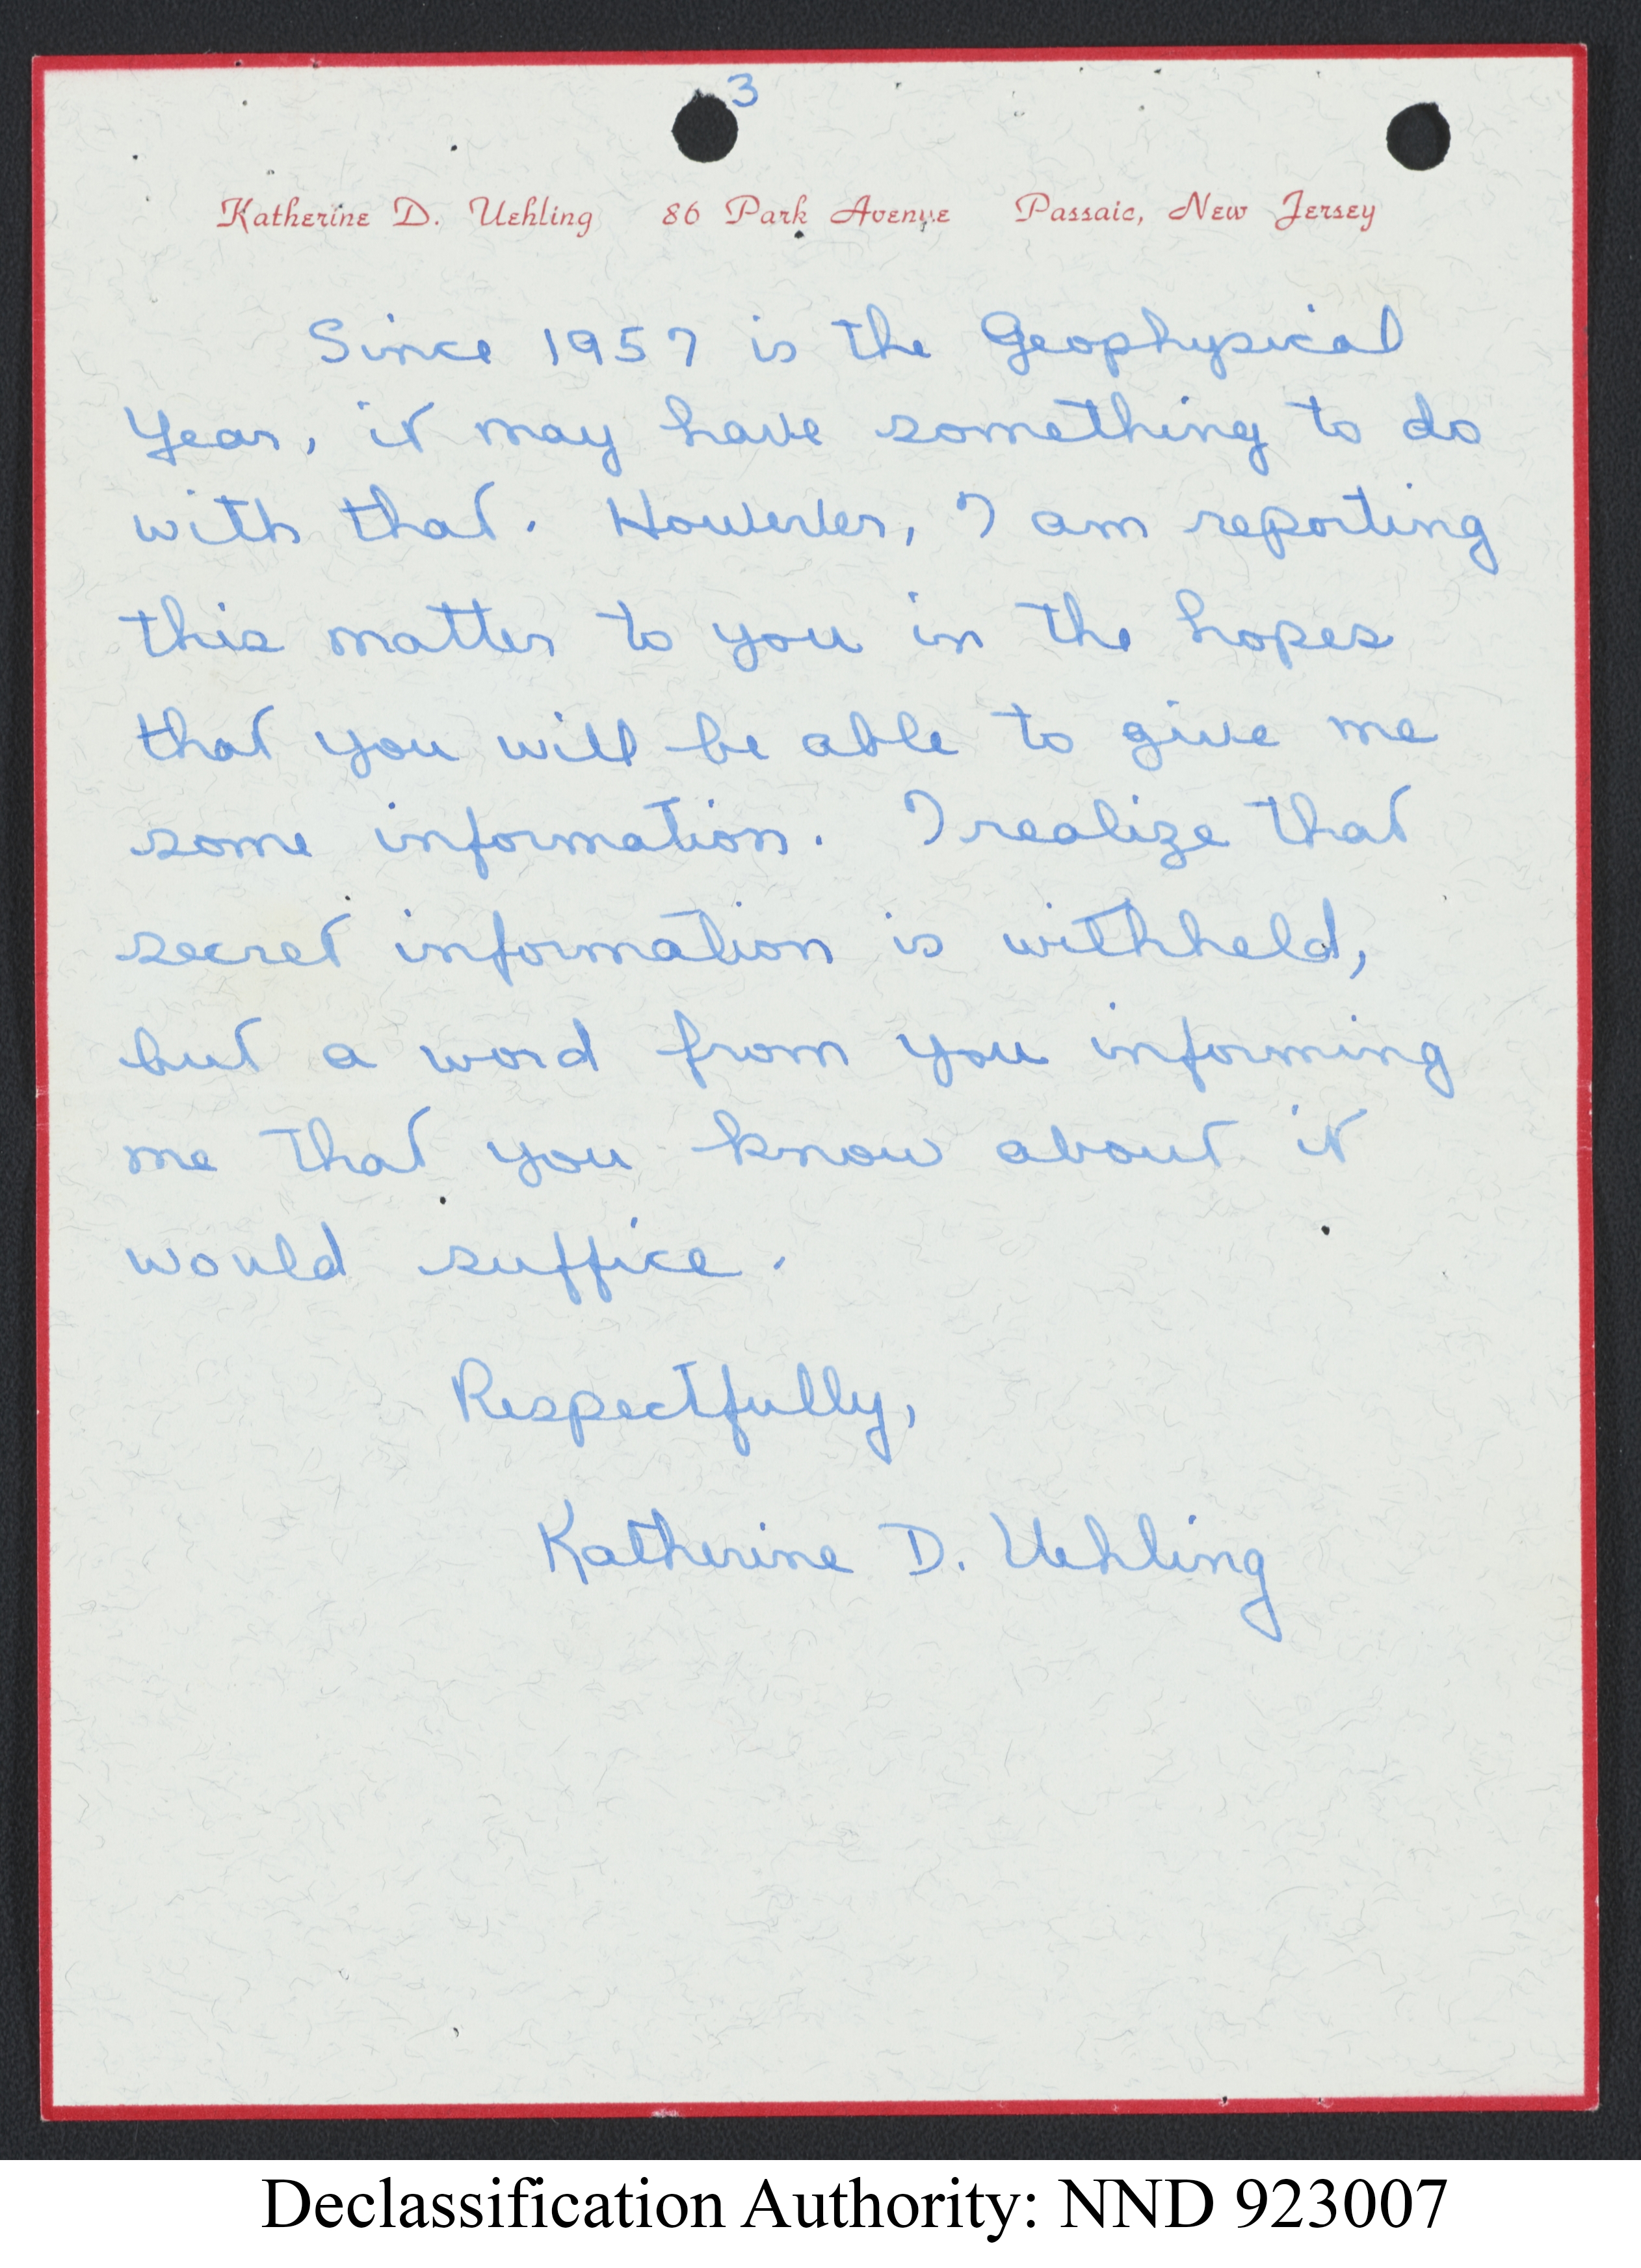 3
Katherine D. Uehling 86 Park Avenue Passaic, New Jersey
Since 1957 is the Geophysical
Year, it may have something to do
with that. However, I am reporting
this matter to you in the hopes
that you will be able to give me
some information. I realize that
secret information is withheld,
but a word from you informing
me that you know about it
would suffice.
Respectfully,
Katherine D. Uehling
Declassification Authority: NND 923007